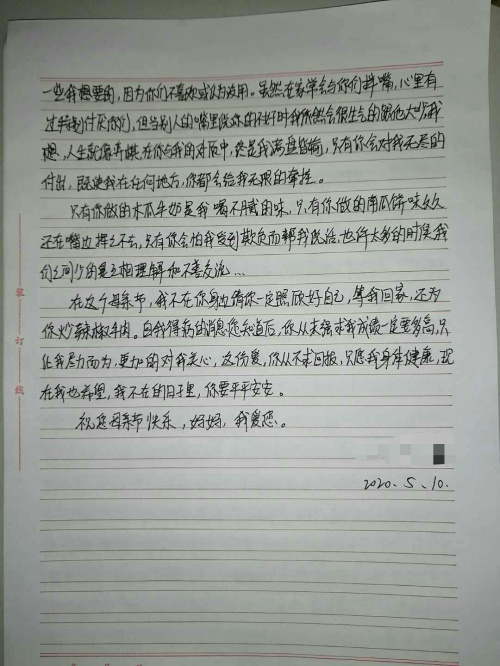 一些我想要的，因为你们不喜欢或认为没用。虽然在家常会与你们拌嘴，心里有
过特别讨厌你们，但当别人的嘴里说你的不好时我依然会很生气的跟他大吵，我
想，人生就像弈棋，在你与我的对质中，总是我满盘皆输，只有你会对我无尽的
付出，既使我在任何地方，你都会给我无限的牵挂。
只有你做的木瓜牛奶是我喝不腻的味，只有你做的南瓜饼味久久
还在嘴边挥之不去，只有你会怕我受到欺负而帮我说话，也许太多的时候我
们之间少的是互相理解和不善交流…
在这个母亲节，我不在你身边请你一定照顾好自己，等我回家，还为
你炒辣椒牛肉。自我得病的消息您知道后，你从未强求我成绩一定要多高，只
让我尽力而为，更加的对我关心，这份爱，你从不求回报，只愿我身体健康，现
在我也希望，我不在的日子里，你要平平安安。
祝您母亲节快乐，妈妈，我爱您。
2020.5.10.
装
订
线